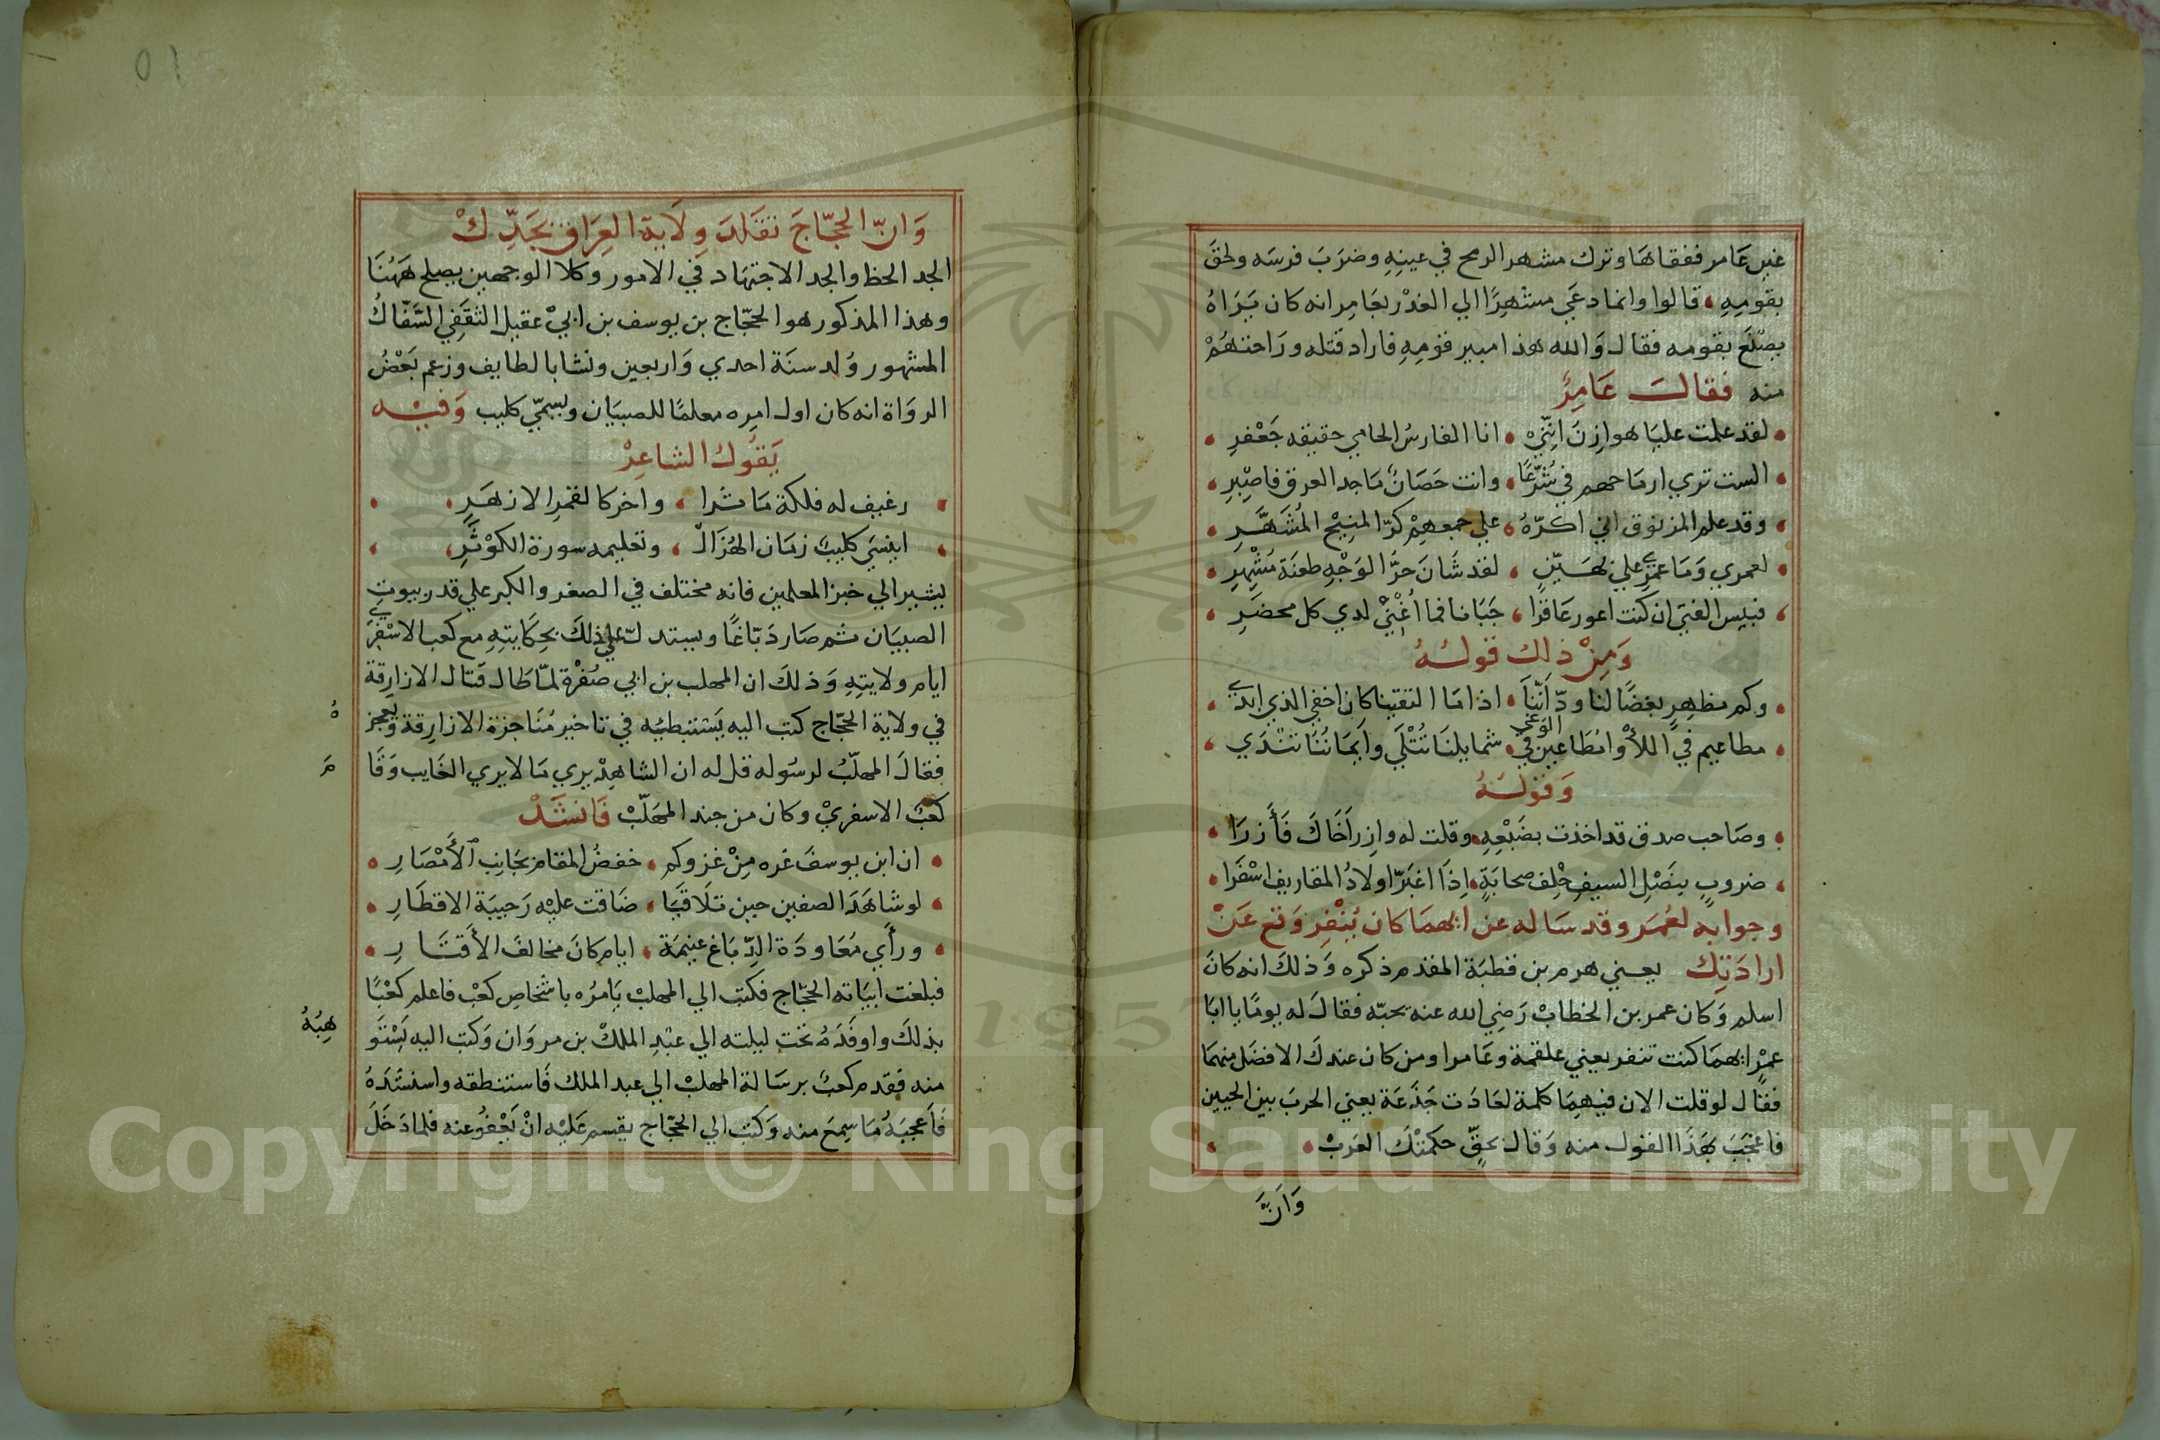 عين عامر ففقاها وترك مشهر الرمح في عينه وضرب فرسه ولحق
بقومه • قالوا وانما دعي مشهرًا الي الغدر بعامر انه كان يراه
يصنع بقومه فقال والله هذا مبير قومه فاراد قتله وراحتهم
منه فقال عامر
• لقد علمت عليا هوازن انني • انا الفارس الحامي حقيقه جعفر •
• الست تري ارماحهم في شرّعًا • وانت حصان ماجد العرق فاصبر •
• وقد علم المزنوق اني اكرّه • علي جمعهم كرّ المنيح المشهّر •
• لعمري وما عمري علي بهيّن • لقد شان حرّ الوجه طعنة مشهر •
• فبيس الفتي ان كنت اعور عاقرا • جبانا فما اغني لدي كل محضر •
ومن ذلك قوله
• وكم مظهر بغضًا لنا ودّ اننا • اذا ما التقينا كان اخفي الذي ابدي •
• مطاعيم في اللأوا مطاعين في الوغي • شمايلنا تبلي وايماننا تندي •
وقوله
• وصاحب صدق قد اخذت بضبعه • وقلت له وازر اخاك فأزرا •
• ضروب بنصل السيف خلف صحابة • اذا اغبرّ اولاد المقاريف اسفرا •
وجوابه لعمر وقد ساله عن ايهما كان ينفر وقع عن
ارادتك يعني هرم بن قطبة المقدم ذكره وذلك انه كان
اسلم وكان عمر بن الخطاب رضي الله عنه يحبّه فقال له يومًا يا ابا
عمرٍ ايهما كنت تنفر يعني علقمة وعامرا ومن كان عندك الافضل منهما
فقال لو قلت الان فيهما كلمة لعادت جذعة يعني الحرب بين الحيين
فاعجب بهذا القول منه وقال بحقّ حكمتك العرب • •
وانّ
01
وانّ الحجّاج تقلد ولاية العراق بجدّك
الجد الحظ والجد الاجتهاد في الامور وكلا الوجهين يصلح ههنا
وهذا المذكور هو الحجّاج بن يوسف بن ابي عقيل الثقفي السّفّاك
المشهور ولد سنة احدي واربعين ونشا بالطايف وزعم بعض
الرواة انه كان اول امره معلمًا للصبيان ويسمّي كليب وفيه
يقول الشاعر
• رغيف له فلكة ما تُرا • واخر كالقمر الازهر • •
• اينسي كليب زمان الهزال • وتعليمه سورة الكوثر • •
يشير الي خبز المعلمين فانه مختلف في الصغر والكبر علي قدر بيوت
الصبيان ثم صار دبّاغًا ويستدل علي ذلك بحكايته مع كعب الاسفري
ايام ولايته وذلك ان المهلب بن ابي صفرة لمّا طال قتال الازارقة
في ولاية الحجّاج كتب اليه يستبطيه في تاخير مناجزة الازارقة ويعجز
ه
فقال المهلّب لرسوله قل له ان الشاهد يري ما لا يري الغايب وقا
م
كعب الاسفري وكان من جند المهلّب فانشد
• ان ابن يوسف غره من غزوكم • خفض المقام بجانب الأمصار •
• لو شاهد الصفين حين تلاقيا • ضاقت عليه رحيبة الاقطار •
• ورأي معاودة الدّباغ غنيمة • ايام كان مخالف الأقتار •
فبلغت ابياته الحجّاج فكتب الي المهلب يامره باشخاص كعب فاعلم كعبًا
بذلك واوفده تحت ليلته الي عبد الملك بن مروان وكتب اليه يستو
هبه
منه فقدم كعب برسالة المهلب الي عبد الملك فاستنطقه واستنشده
فاعجبه ما سمع منه وكتب الي الحجّاج يقسم عليه ان يعفو عنه فلما دخل
1957
Copyright © King Saud University